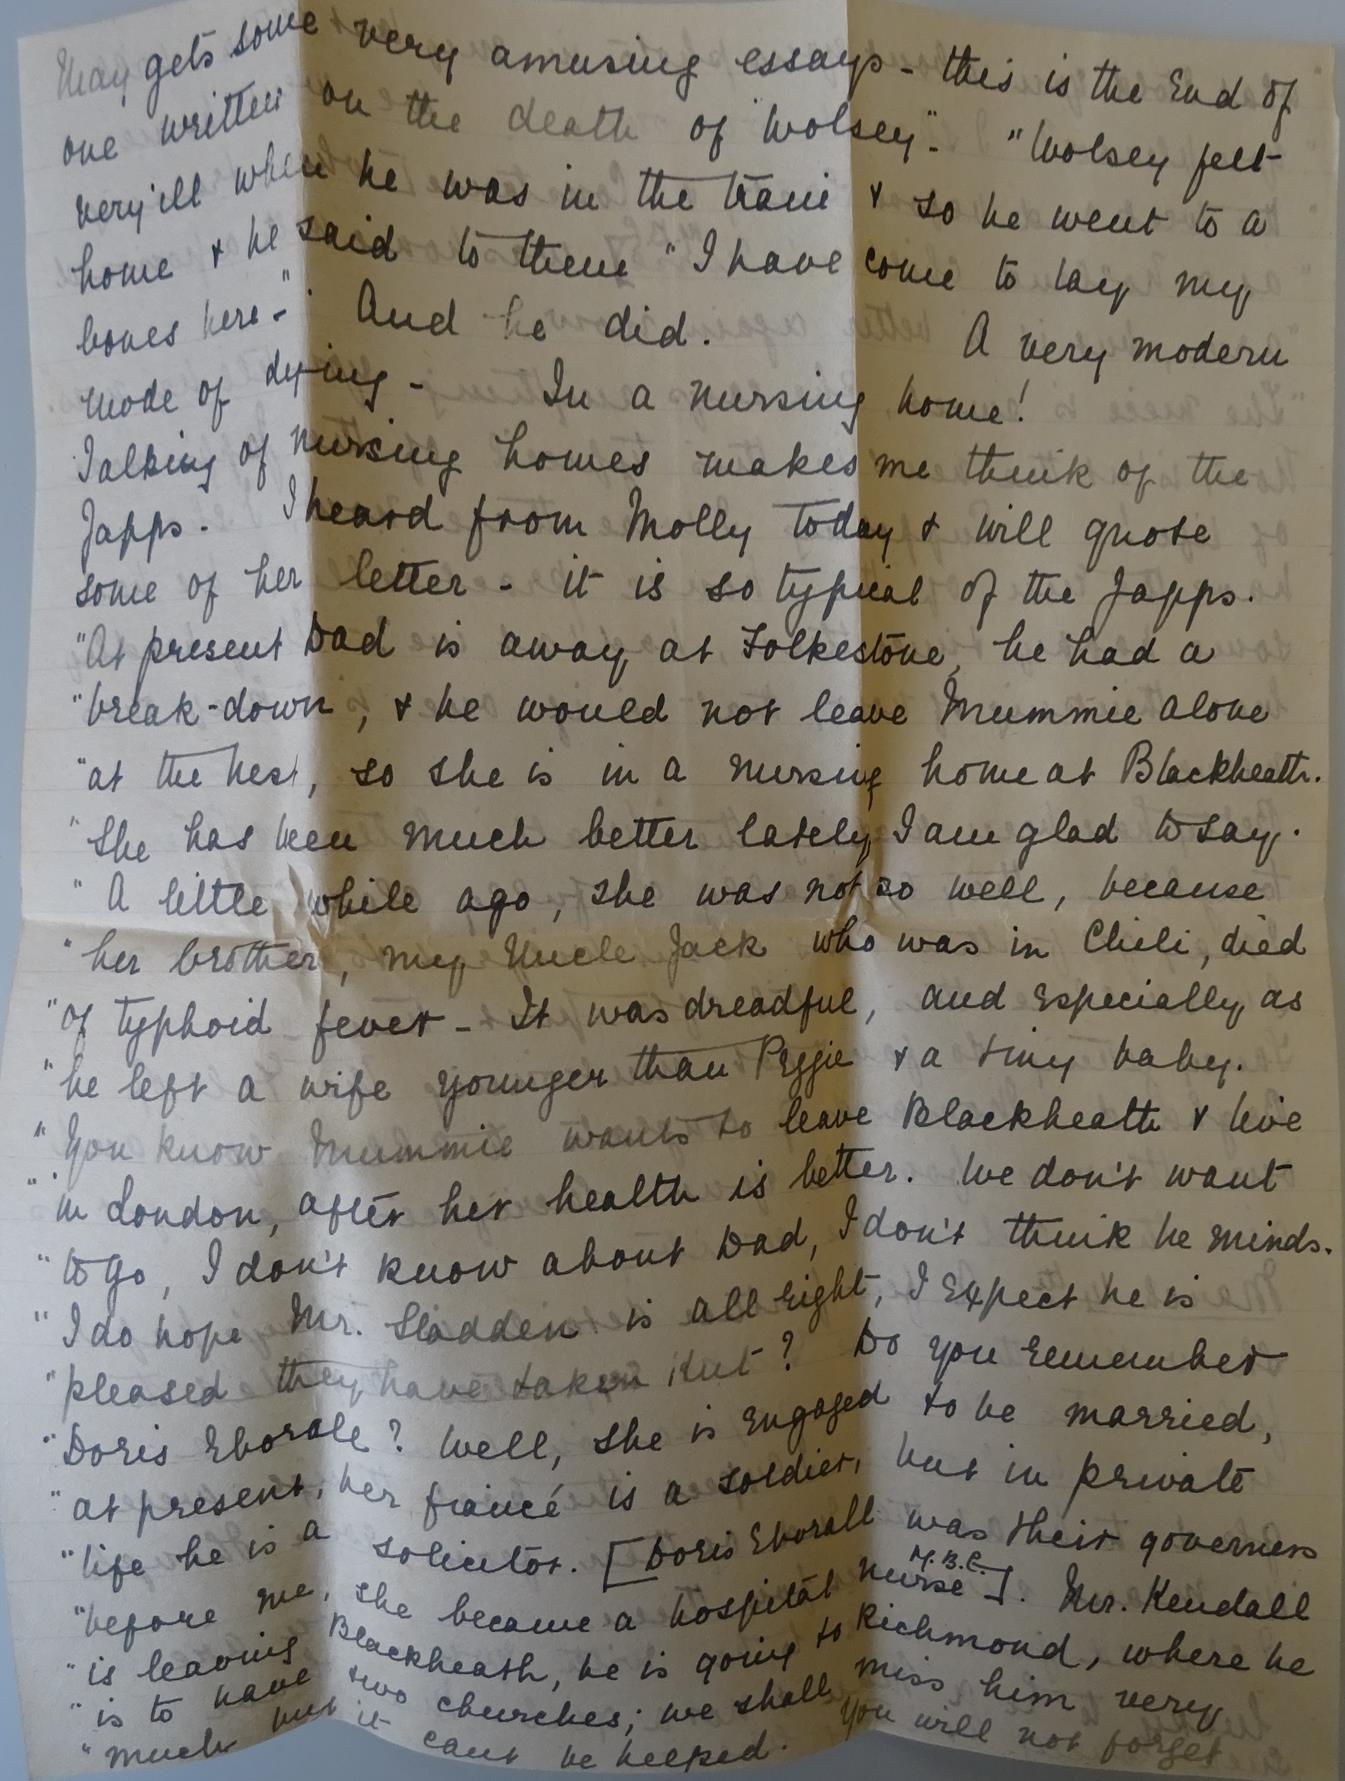 May gets some very amusing essays - this is the End of
one written on the death of Wolsey". "Wolsey felt
very ill when he was in the train & so he went to a
home & he said to them "I have come to lay my
bones here -" And he did. A very modern
mode of dying - In a nursing home!
Talking of nursing homes makes me think of the
Japps. I heard from Molly today & will quote
some of her letter - it is so typical of the Japps.
"At present Dad is away at Folkestone, he had a
"break-down, & he would not leave Mummie alone
"at the Nest, so she is in a nursing home at Blackheath.
"She has been much better lately, I am glad to say.
"A little while ago, she was not so well, because
"her brother, my Uncle Jack who was in Chili, died
"of typhoid fever - It was dreadful, and Especially as
"he left a wife younger than Peggie & a tiny baby.
"You know Mummie wants to leave Blackheath & live
"in London, after her health is better. We don't want
"to go, I don't know about Dad, I don't think he minds.
"I do hope Mr. Sladden is all right, I Expect he is
"pleased they have taken Kut? Do you remember
"Doris Eborale? Well, she is Engaged to be married,
"at present, her fiancé is a soldier, but in private
"life he is a solicitor. [Doris Eborall was their governess
"before me, she became a hospital nurse M.B.E.]. Mr. Kendall
"is leaving Blackheath, he is going to Richmond, where he
"is to have two churches; we shall miss him very
"much but it can't be helped. You will not forget